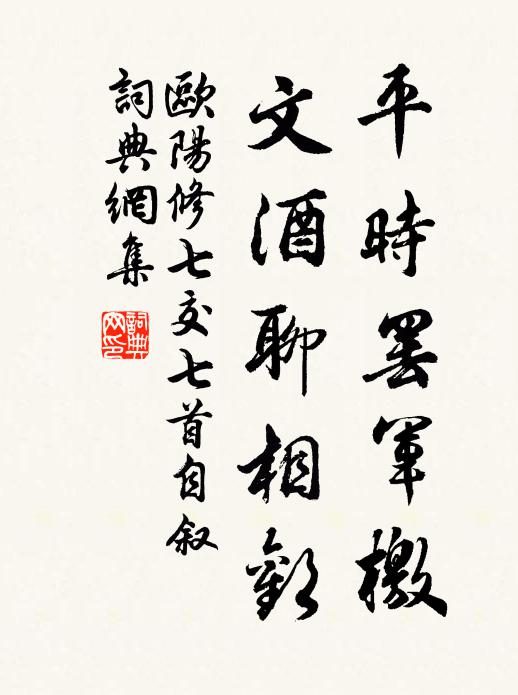 平時罷軍檄
文酒聊相歡
歐陽修七交七首自叙
詞典網集
詞典
网印